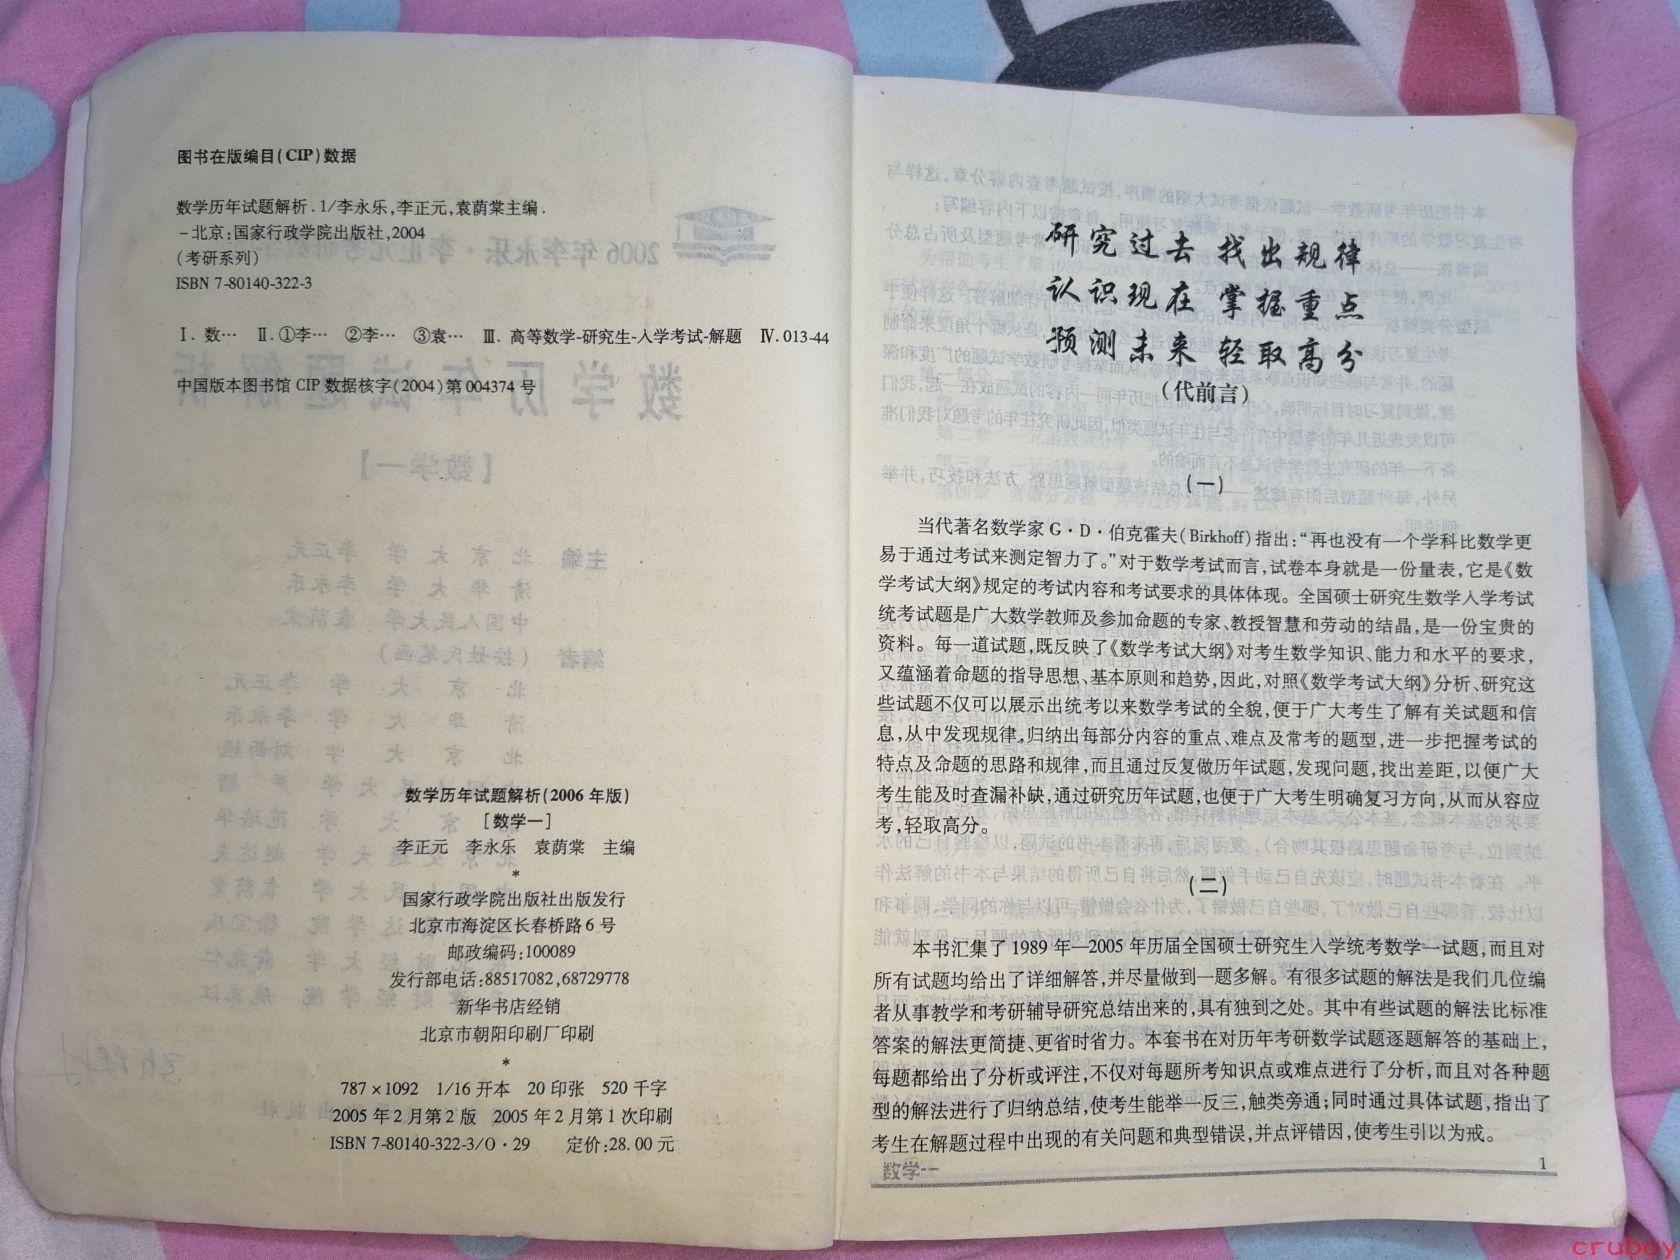 图书在版编目(CIP)数据
数学历年试题解析.1/李永乐,李正元,袁荫棠主编.
-北京:国家行政学院出版社,2004
(考研系列)
ISBN 7-80140-322-3
Ⅰ.数… Ⅱ.①李… ②李… ③袁… Ⅲ.高等数学-研究生-入学考试-解题 Ⅳ.013-44
中国版本图书馆CIP数据核字(2004)第004374号
数学历年试题解析(2006年版)
[数学一]
李正元 李永乐 袁荫棠 主编
*
国家行政学院出版社出版发行
北京市海淀区长春桥路6号
邮政编码:100089
发行部电话:88517082,68729778
新华书店经销
北京市朝阳印刷厂印刷
*
787×1092 1/16开本 20印张 520千字
2005年2月第2版 2005年2月第1次印刷
ISBN 7-80140-322-3/O·29 定价:28.00元
研究过去 找出规律
认识现在 掌握重点
预测未来 轻取高分
(代前言)
(一)
当代著名数学家G·D·伯克霍夫(Birkhoff)指出:“再也没有一个学科比数学更
易于通过考试来测定智力了。”对于数学考试而言,试卷本身就是一份量表,它是《数
学考试大纲》规定的考试内容和考试要求的具体体现。全国硕士研究生数学入学考试
统考试题是广大数学教师及参加命题的专家、教授智慧和劳动的结晶,是一份宝贵的
资料。每一道试题,既反映了《数学考试大纲》对考生数学知识、能力和水平的要求,
又蕴涵着命题的指导思想、基本原则和趋势,因此,对照《数学考试大纲》分析、研究这
些试题不仅可以展示出统考以来数学考试的全貌,便于广大考生了解有关试题和信
息,从中发现规律,归纳出每部分内容的重点、难点及常考的题型,进一步把握考试的
特点及命题的思路和规律,而且通过反复做历年试题,发现问题,找出差距,以便广大
考生能及时查漏补缺,通过研究历年试题,也便于广大考生明确复习方向,从而从容应
考,轻取高分。
(二)
本书汇集了1989年—2005年历届全国硕士研究生入学统考数学一试题,而且对
所有试题均给出了详细解答,并尽量做到一题多解。有很多试题的解法是我们几位编
者从事教学和考研辅导研究总结出来的,具有独到之处。其中有些试题的解法比标准
答案的解法更简捷、更省时省力。本套书在对历年考研数学试题逐题解答的基础上,
每题都给出了分析或评注,不仅对每题所考知识点或难点进行了分析,而且对各种题
型的解法进行了归纳总结,使考生能举一反三,触类旁通;同时通过具体试题,指出了
考生在解题过程中出现的有关问题和典型错误,并点评错因,使考生引以为戒。
数学一
1
cruboy